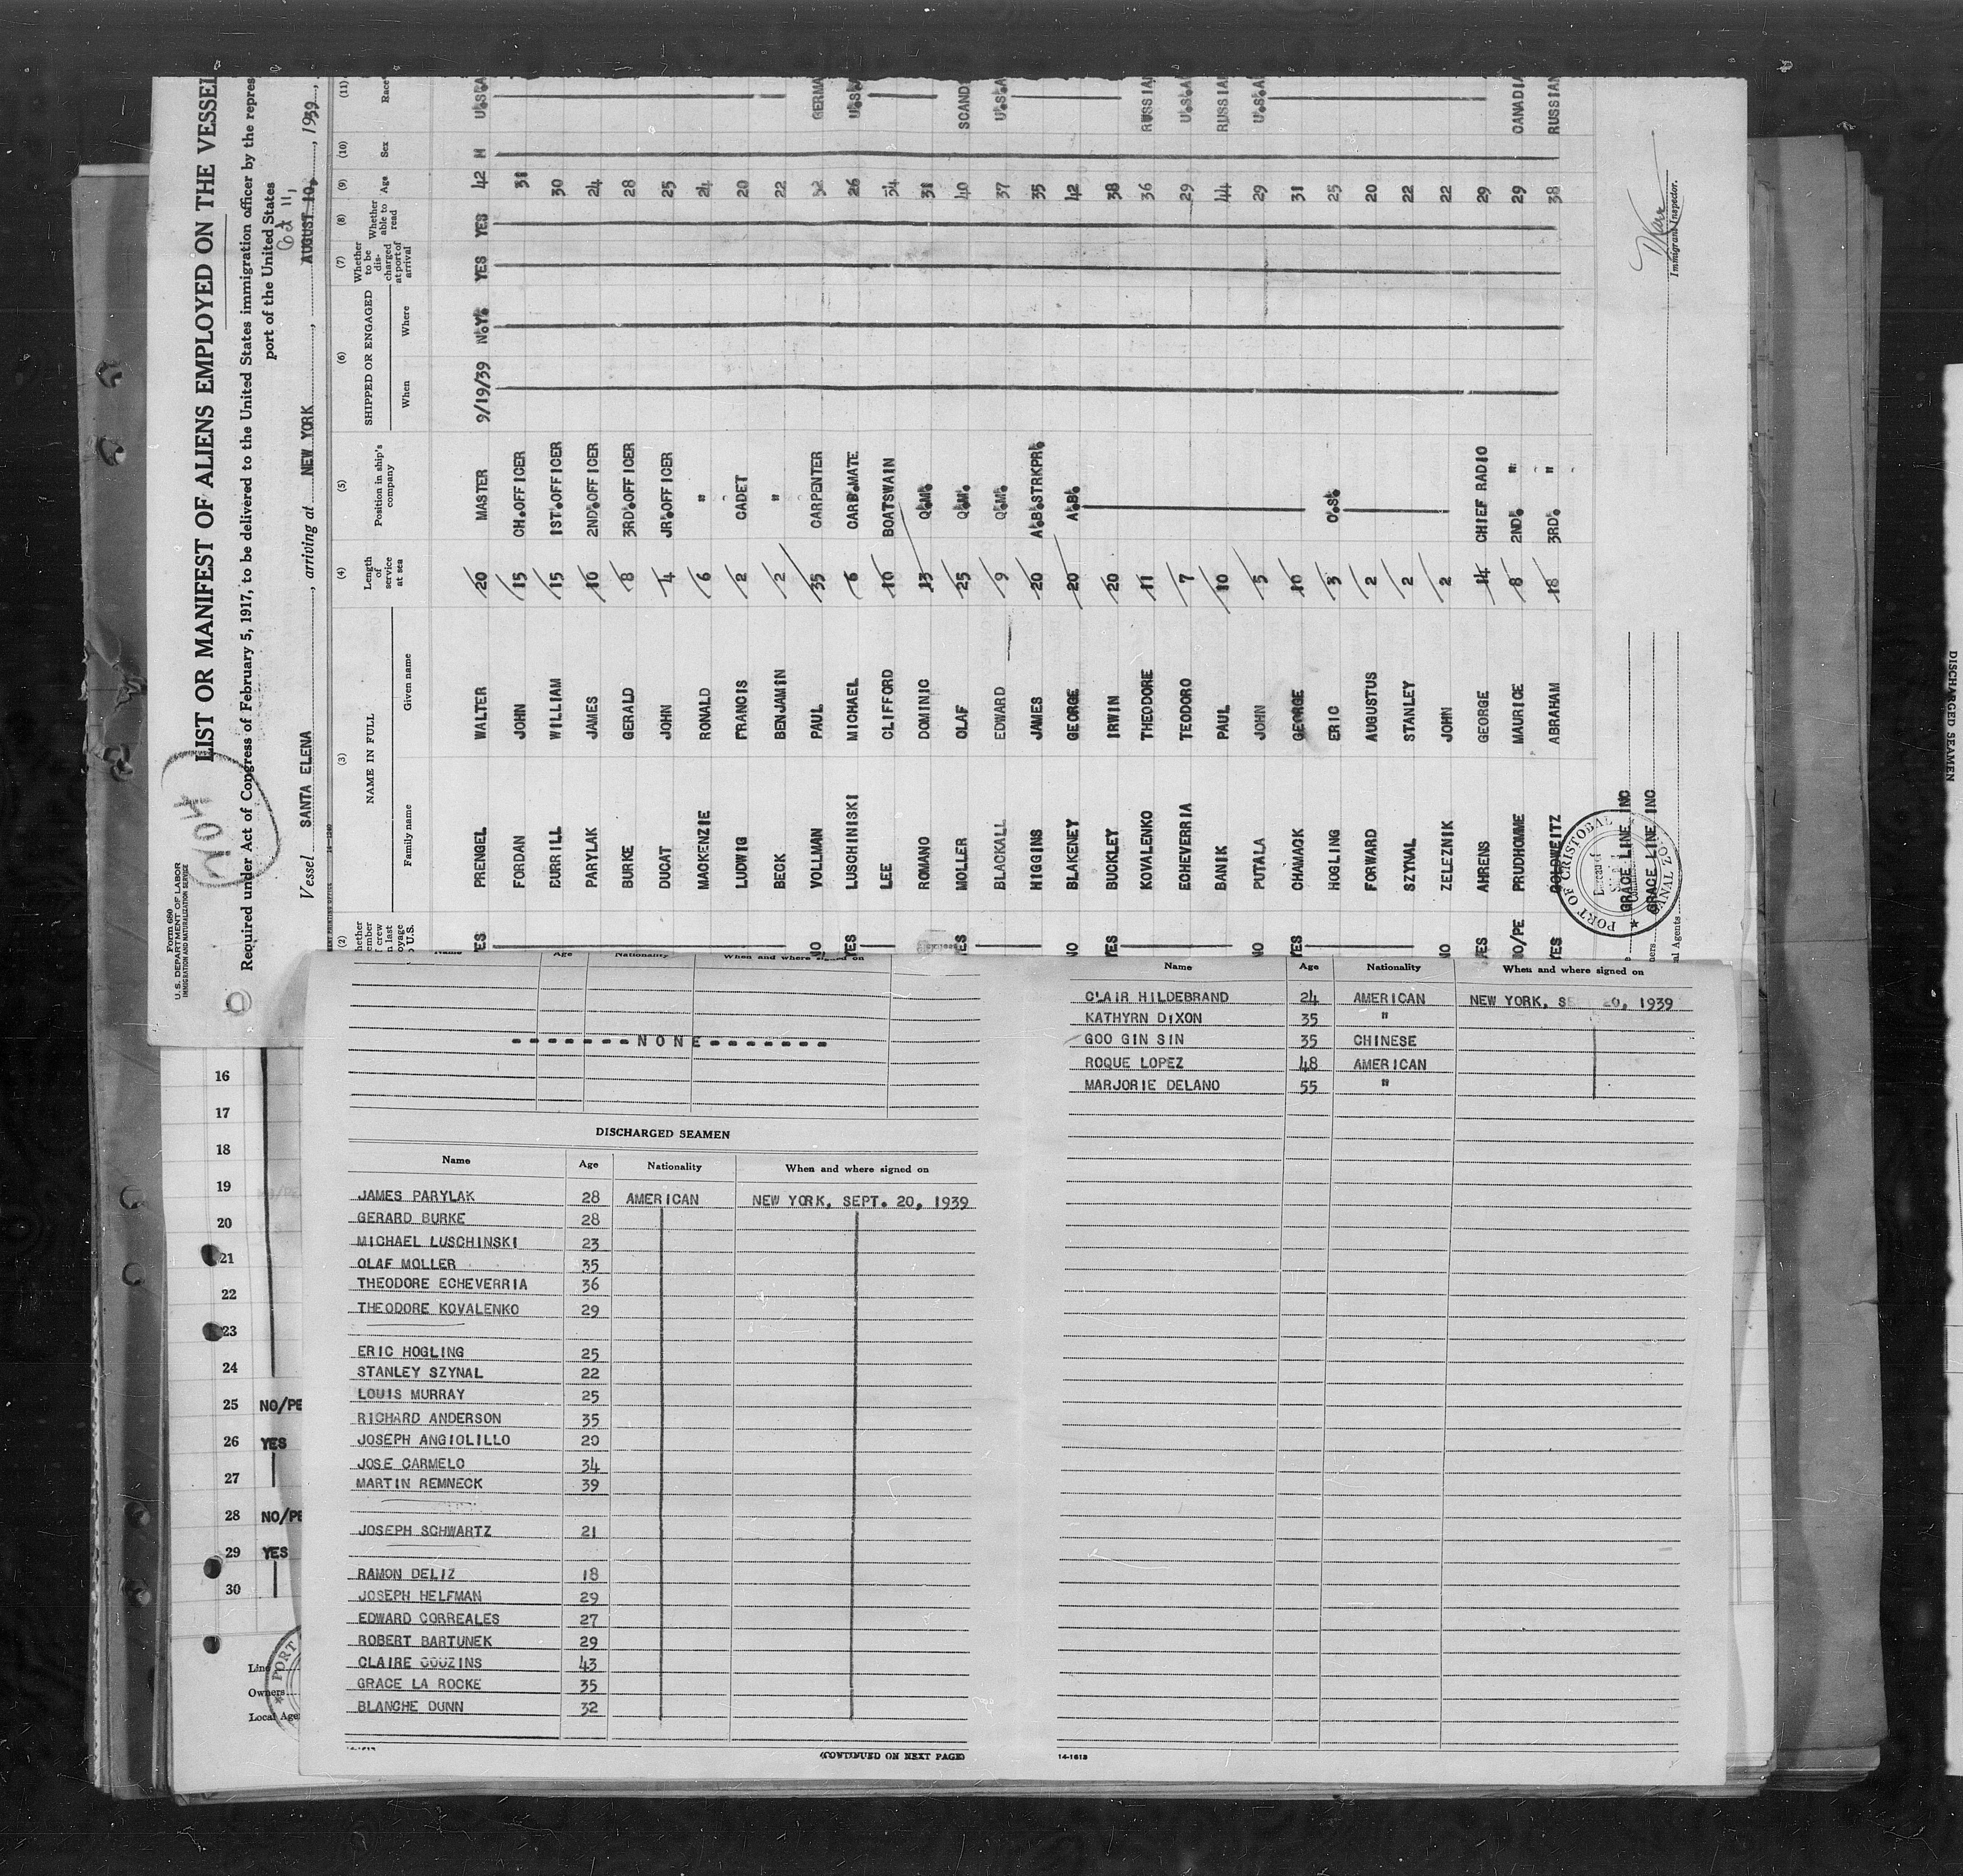 Form 680
U.S. DEPARTMENT OF LABOR
IMMIGRATION AND NATURALIZATION SERVICE
LIST OR MANIFEST OF ALIENS EMPLOYED ON THE VESSEL
Required under Act of Congress of February 5, 1917, to be delivered to the United States immigration officer by the repres
port of the United States
Vessel SANTA ELENA, arriving at NEW YORK, AUGUST 10, 1939,
(2) (3) (4) (5) (6) (7) (8) (9) (10) (11)
NAME IN FULL
Family name Given name
Length of service at sea
Position in ship's company
SHIPPED OR ENGAGED
When Where
Whether to be discharged at port of arrival
Whether able to read
Age Sex Race
YES PRENGEL WALTER 20 MASTER 9/19/39 N.Y. YES YES 42 M U.S.A
FORDAN JOHN 15 CH.OFFICER 31
BURRILL WILLIAM 15 1ST.OFFICER 30
PARYLAK JAMES 10 2ND.OFFICER 24
BURKE GERALD 8 3RD.OFFICER 28
DUCAT JOHN 4 JR.OFFICER 25
MACKENZIE RONALD 6 " 24
LUDWIG FRANCIS 2 CADET 20
BECK BENJAMIN 2 " 22
NO VOLLMAN PAUL 35 CARPENTER 52 GERMA
YES LUSCHINISKI MICHAEL 6 CARP.MATE 26 U.S.A
LEE CLIFFORD 10 BOATSWAIN 54
ROMANO DOMINIC 13 Q.M. 31
YES MOLLER OLAF 25 Q.M. 40 SCAND
BLACKALL EDWARD 9 Q.M. 37 U.S.A
HIGGINS JAMES 20 A.B.STRKPR. 35
NO BLAKENEY GEORGE 20 A.B. 42
YES BUCKLEY IRWIN 20 38
KOVALENKO THEODORE 11 36 RUSSIAN
ECHEVERRIA TEODORO 7 29 U.S.A.
BANIK PAUL 10 44 RUSSIAN
NO PUTALA JOHN 5 29 U.S.A.
YES CHAMACK GEORGE 10 31
HOGLING ERIC 3 O.S. 25
FORWARD AUGUSTUS 2 20
SZYNAL STANLEY 2 22
NO ZELEZNIK JOHN 2 22
YES AHRENS GEORGE 14 CHIEF RADIO 29
NO/PE PRUDHOMME MAURICE 8 2ND. " 29 CANADIA
YES GOLDWEITZ ABRAHAM 18 3RD. " 38 RUSSIAN
GRACE LINE INC
GRACE LINE INC
PORT OF CRISTOBAL
CANAL ZO
Immigrant Inspector.
16
17
18
19
20
21
22
23
24
25 NO/PE
26 YES
27
28 NO/PE
29 YES
30
Line
Owners
Local Age
PORT
Name Age Nationality When and where signed on
NONE
DISCHARGED SEAMEN
Name Age Nationality When and where signed on
JAMES PARYLAK 28 AMERICAN NEW YORK, SEPT. 20, 1939
GERARD BURKE 28
MICHAEL LUSCHINSKI 23
OLAF MOLLER 35
THEODORE ECHEVERRIA 36
THEODORE KOVALENKO 29
ERIC HOGLING 25
STANLEY SZYNAL 22
LOUIS MURRAY 25
RICHARD ANDERSON 35
JOSEPH ANGIOLILLO 20
JOSE CARMELO 34
MARTIN REMNECK 39
JOSEPH SCHWARTZ 21
RAMON DELIZ 18
JOSEPH HELFMAN 29
EDWARD CORREALES 27
ROBERT BARTUNEK 29
CLAIRE COUZINS 43
GRACE LA ROCKE 35
BLANCHE DUNN 32
(CONTINUED ON NEXT PAGE)
Name Age Nationality When and where signed on
CLAIR HILDEBRAND 24 AMERICAN NEW YORK, SEPT 20, 1939
KATHYRN DIXON 35 "
GOO GIN SIN 35 CHINESE
ROQUE LOPEZ 48 AMERICAN
MARJORIE DELANO 55 "
14-1613
DISCHARGED SEAMEN